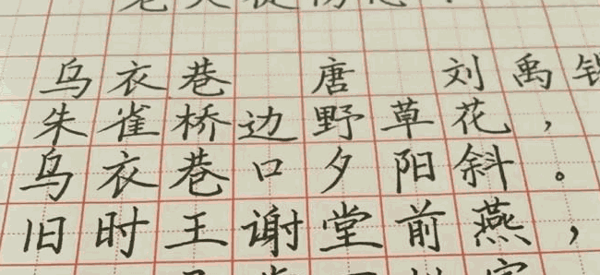 乌衣巷 唐 刘禹锡
朱雀桥边野草花，
乌衣巷口夕阳斜。
旧时王谢堂前燕，